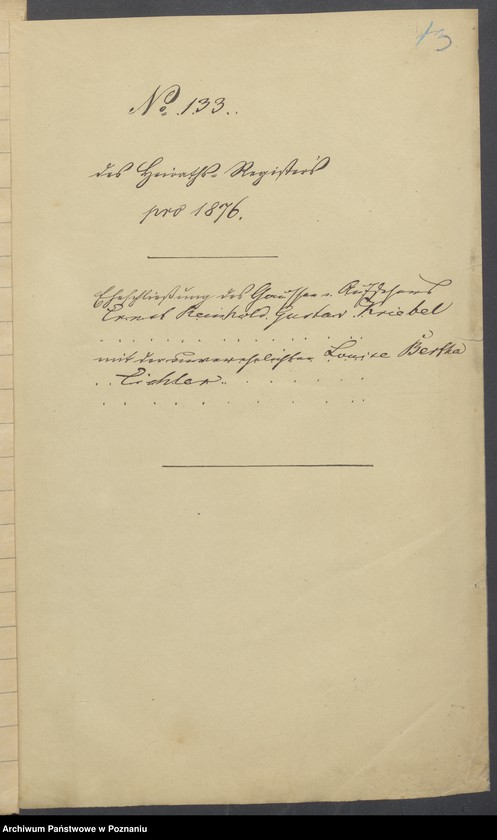 13
No. 133.
des Heiraths-Registers
pro 1876.
Eheschließung des
Ernst Reinhold Gustav Kriebel
mit der unverehelichten Louise Bertha
Eichler
Archiwum Państwowe w Poznaniu